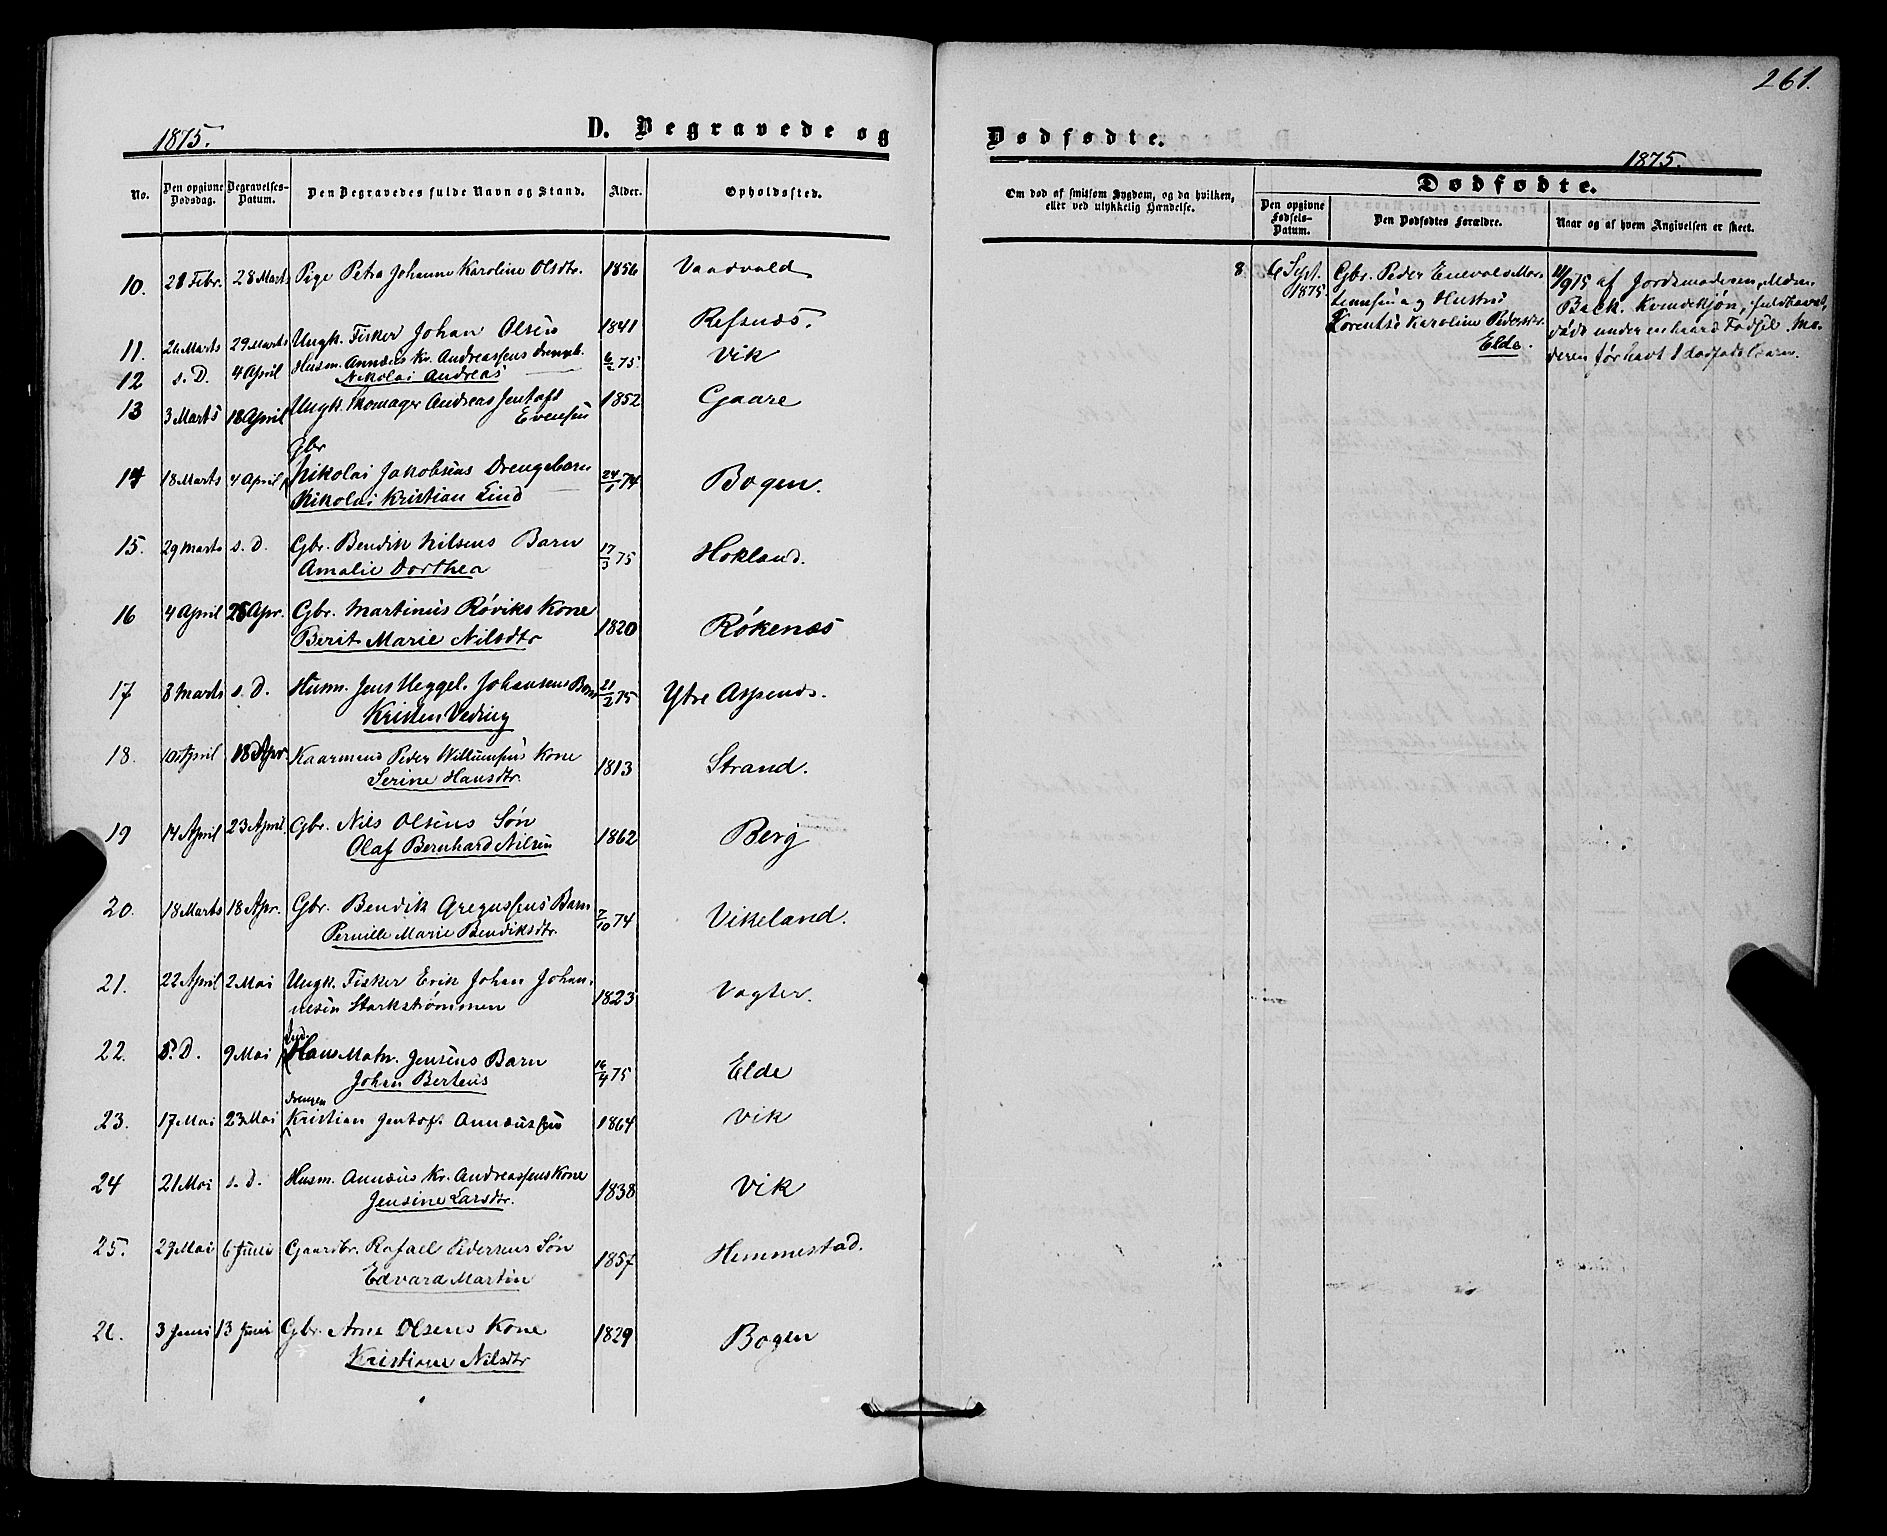 261.
1875.
D. Begravede og
Dødfødte.
1875.
No.
Den opgivne Dødsdag.
Begravelses-Datum.
Den Begravedes fulde Navn og Stand.
Alder.
Opholdssted.
Om død af smitsom Sygdom, og da hvilken,
eller ved ulykkelig Hændelse.
Dødfødte.
Den opgivne Fødsels-Datum.
Den Dødfødtes Forældre.
Naar og af hvem Angivelsen er skeet.
10. 28 Febr. 28 Marts Pige Petra Johanne Karoline Olsdtr. 1856
11. 26 Marts 29 Marts Ungk. Fisker Johan Olsen 1841 Refsnæs.
12 s. D. 4 April Husm. Annæus Kr. Andreassens Drengeb. 6/2 75 Vik
Nikolai Andreas
13 3 Marts 18 April Ungk. Skomager Andreas Jentoft 1852 Gaare
Evensen
Gbr
14 18 Marts 4 April Nikolai Jakobsens Drengebarn 74 Bogen.
Nikolai Kristian Lind
15. 29 Marts s. D. Gbr. Bendik Nilsens Barn 17/3 75 Hokland.
Amalie Dorthea
16 4 April 25 Apr. Gbr. Martinus Røviks Kone 1820 Røkenæs
Berit Marie Nilsdtr
17 8 Marts s. D. Husm. Jens Heggel. Johansens Barn 21/2 75 Ytre Aspenæs.
Kristen Veding
18. 10 April 18 Apr. Kaarmand Peder Willumsens Kone 1813 Strand.
Serine Hansdtr.
19 14 April 23 April Gbr. Nils Olsens Søn 1862 Berg
Olaf Bernhard Nilsen
20. 18 Marts 18 Apr. Gbr. Bendik Gregussens Barn 2/10 74 Vikeland.
Pernille Marie Bendiksdtr.
21. 22 April 2 Mai Ungk. Fisker Erik Johan Johan-
nesen Storkstrømmen 1823 Vogter.
22. s. D. 9 Mai Hans Matn. Jensens Barn 16/4 75 Elde
Johan Berteus
Drengen
23. 17 Mai 23 Mai Kristian Jentof. Annæussen 1864 Vik
24 21 Mai s. D. Husm. Annæus Kr. Andreassens Kone 1838 Vik
Jensine Larsdtr.
25. 27 Mai 6 Juni Gaardbr. Rafael Pedersens Søn 1857 Hemmestad.
Edvard Martin
26. 3 Juni 13 Juni Gbr. Arne Olsens Kone 1829 Bogen
Kristiane Nilsdtr
8. 6 Sept. 1875. Gbr. Peder Enevold Mor-
tensen og Hustru
Lorentse Karoline Pedersdtr.
Elde.
11/9 75 af Jordemoderen, Mdm.
Back. Kvendekjøn, fuldbaaret,
døde under en haard Fødsel. Mo-
deren før havt 1 dødfødt Barn.